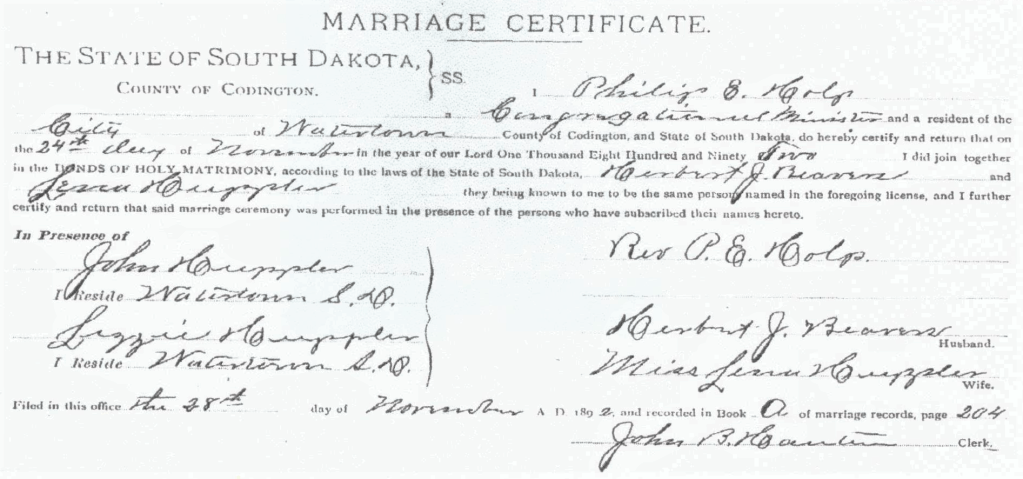 MARRIAGE CERTIFICATE.
THE STATE OF SOUTH DAKOTA, } SS.
COUNTY OF CODINGTON.
I Philip E. Holp
a Congregational Minister and a resident of the
City of Watertown County of Codington, and State of South Dakota, do hereby certify and return that on
the 24th day of November in the year of our Lord One Thousand Eight Hundred and Ninety Two I did join together
in the BONDS OF HOLY MATRIMONY, according to the laws of the State of South Dakota, Herbert J. Beavers and
Lena Huppler they being known to me to be the same persons named in the foregoing license, and I further
certify and return that said marriage ceremony was performed in the presence of the persons who have subscribed their names hereto.
In Presence of
John Huppler
I Reside Watertown S. D.
Lizzie Huppler
I Reside Watertown S. D.
Rev P. E. Holp.
Herbert J. Beavers
Husband.
Miss Lena Huppler
Wife.
Filed in this office the 28th day of November A. D. 1892, and recorded in Book A of marriage records, page 204
John B. Clerk.